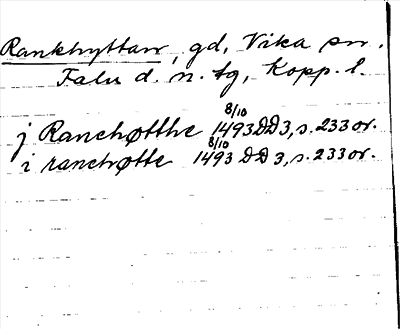 Rankhyttan, gd, Vika sn.
Falu d. n. tg, Kopp. l.
j Ranchøtthe 8/10 1493 DD 3, s. 233 or.
i ranchøtte 8/10 1493 DD 3, s. 233 or.